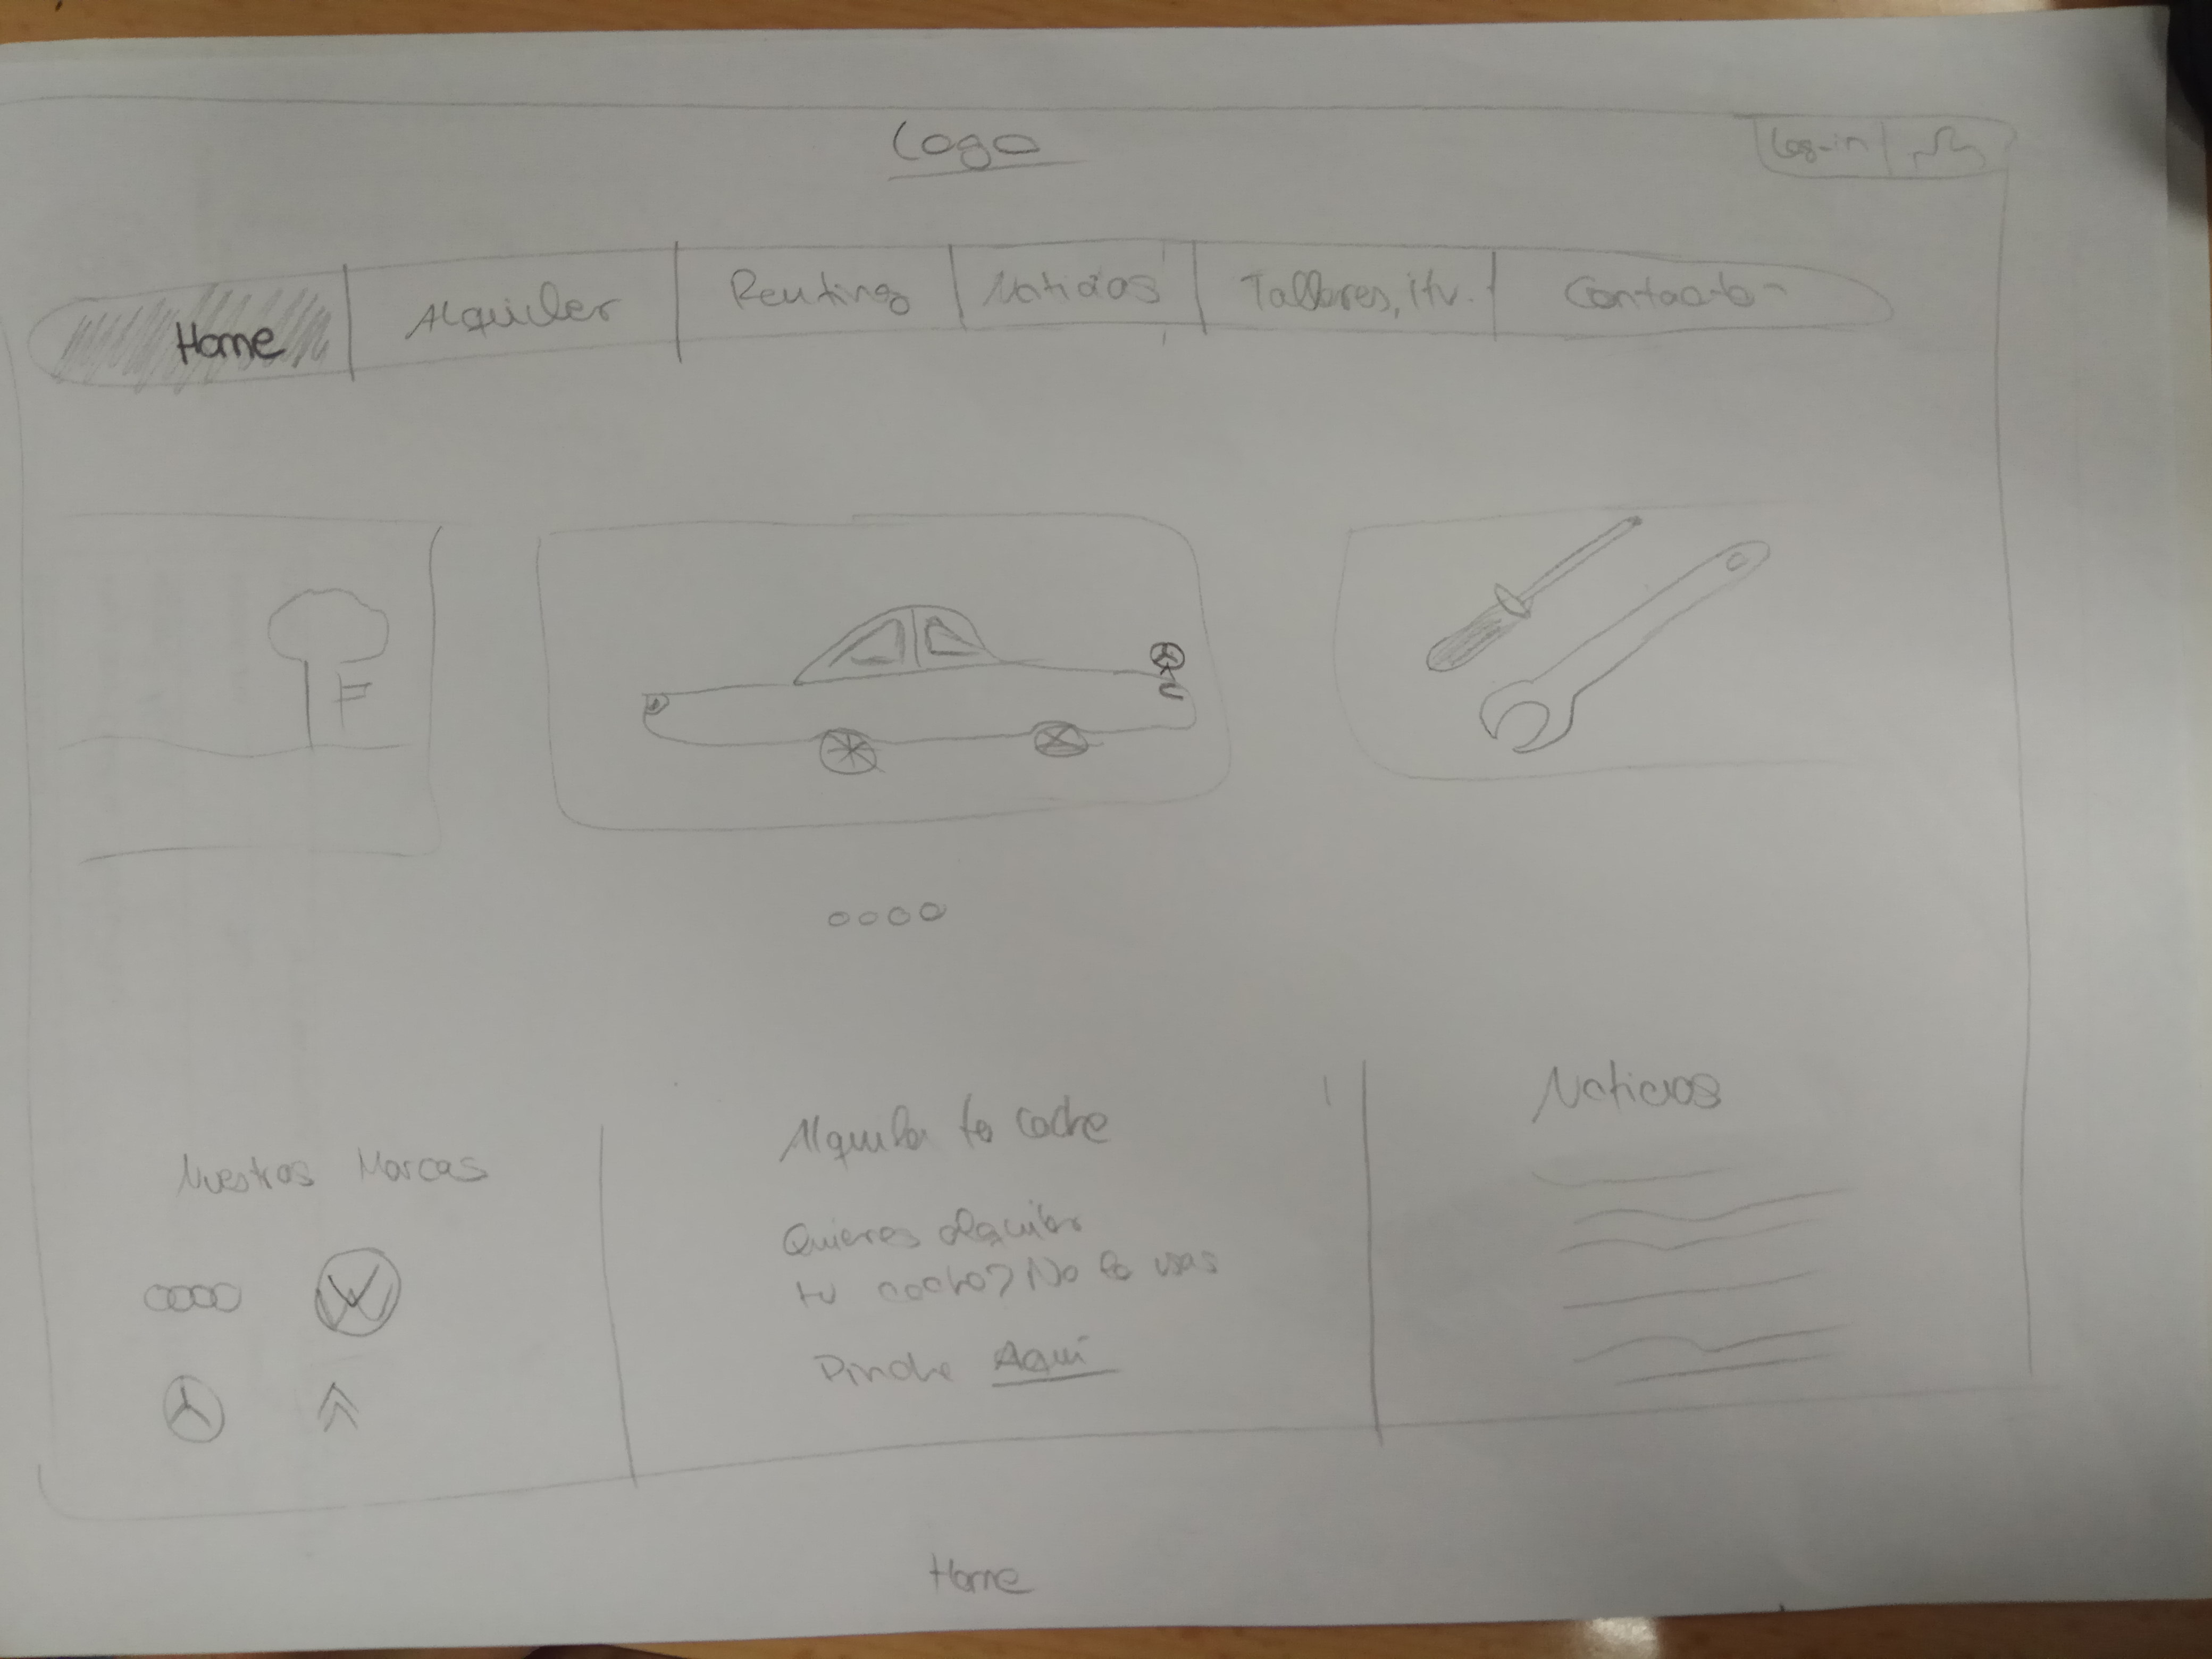 Logo
Log-in
Home
Alquiler
Renting
Noticias
Talleres, itv.
Contacto
Nuestras Marcas
Alquila tu coche
Quieres alquilar
tu coche? No lo usas
Pinche Aquí
Noticias
Home